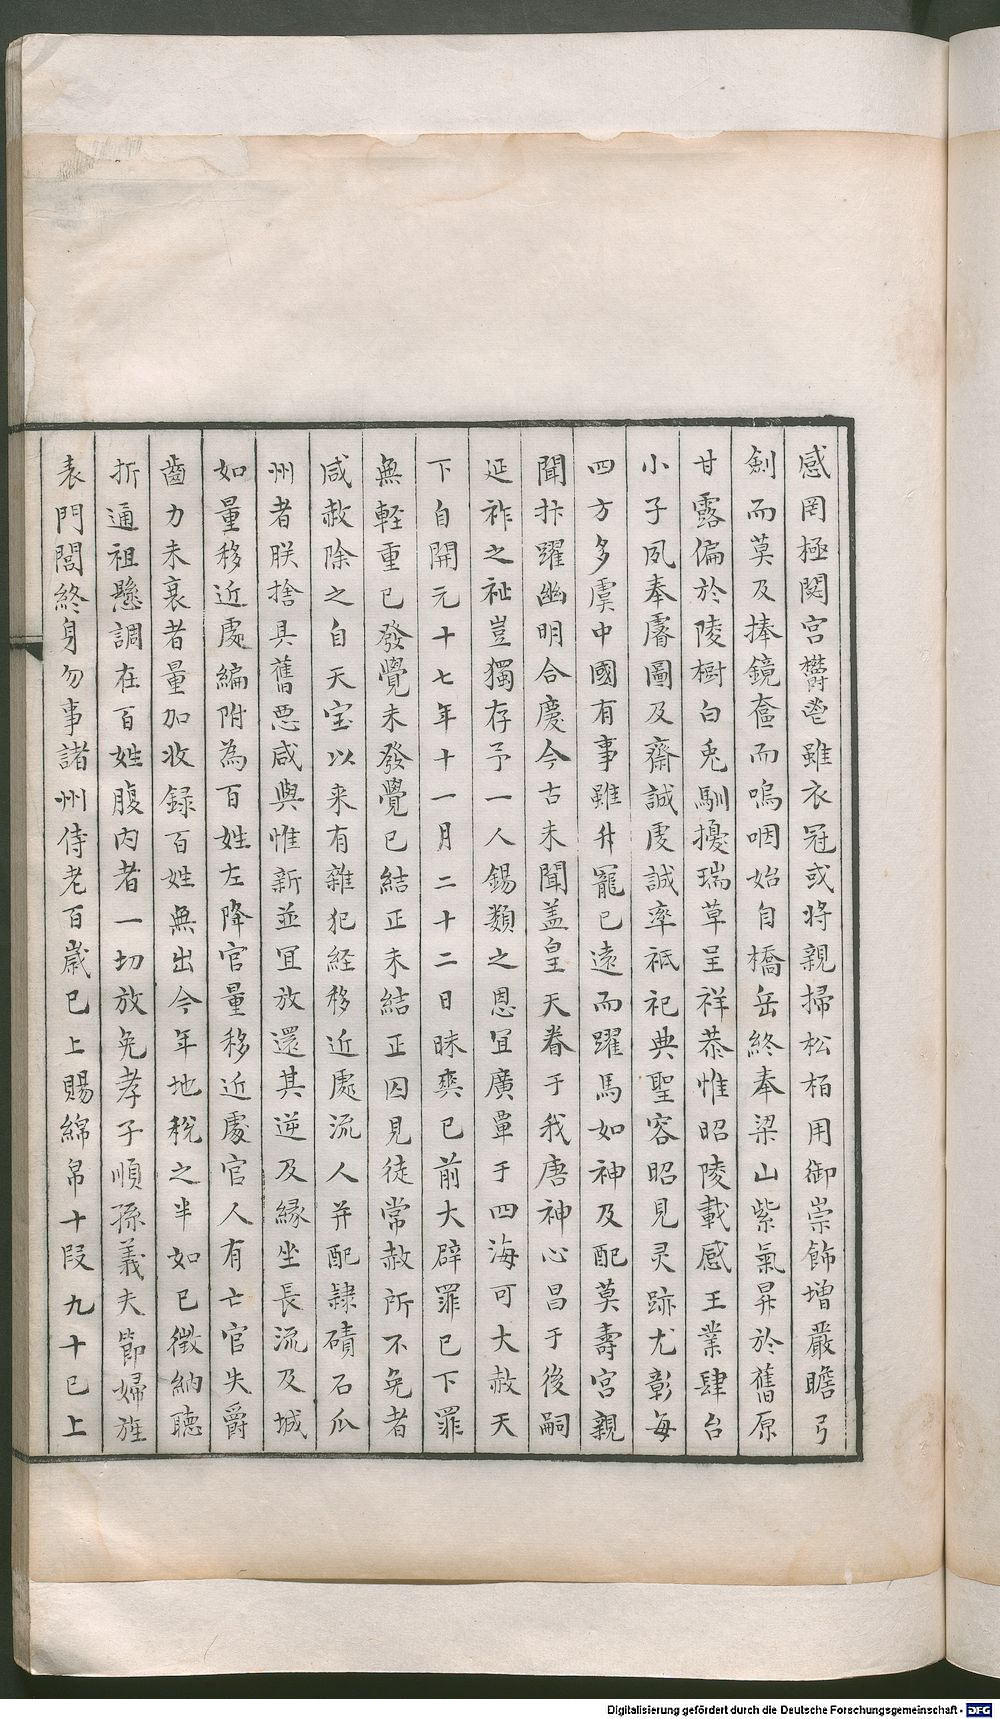 感罔極閟宮鬱鬯雖衣冠或將親掃松栢用御崇飾增嚴瞻弓
劍而莫及捧鏡奩而嗚咽始自橋岳終奉梁山紫氣昇於舊原
甘露偏於陵樹白兎馴擾瑞草呈祥恭惟昭陵載感王業肆台
小子夙奉膺圖及齋誠虔誠率祗祀典聖容昭見灵跡尤彰每
四方多虞中國有事雖升寵已遠而躍馬如神及配莫壽宮親
聞抃躍幽明合慶今古未聞盖皇天眷于我唐神心昌于後嗣
延祚之祉豈獨存予一人錫類之恩宜廣覃于四海可大赦天
下自開元十七年十一月二十二日昧爽已前大辟罪已下罪
無軽重已發覺未發覺已結正未結正囚見徒常赦所不免者
咸赦除之自天宝以来有雜犯経移近處流人并配隸磧石瓜
州者朕捨其舊惡咸與惟新並冝放還其逆及緣坐長流及城
如量移近處編附為百姓左降官量移近處官人有亡官失爵
齒力未衰者量加收録百姓無出今年地税之半如已徵納聽
折通祖懸調在百姓腹内者一切放免孝子順孫義夫節婦旌
表門閭終身勿事諸州侍老百歲已上賜綿帛十叚九十已上
Digitalisierung gefördert durch die Deutsche Forschungsgemeinschaft - DFG